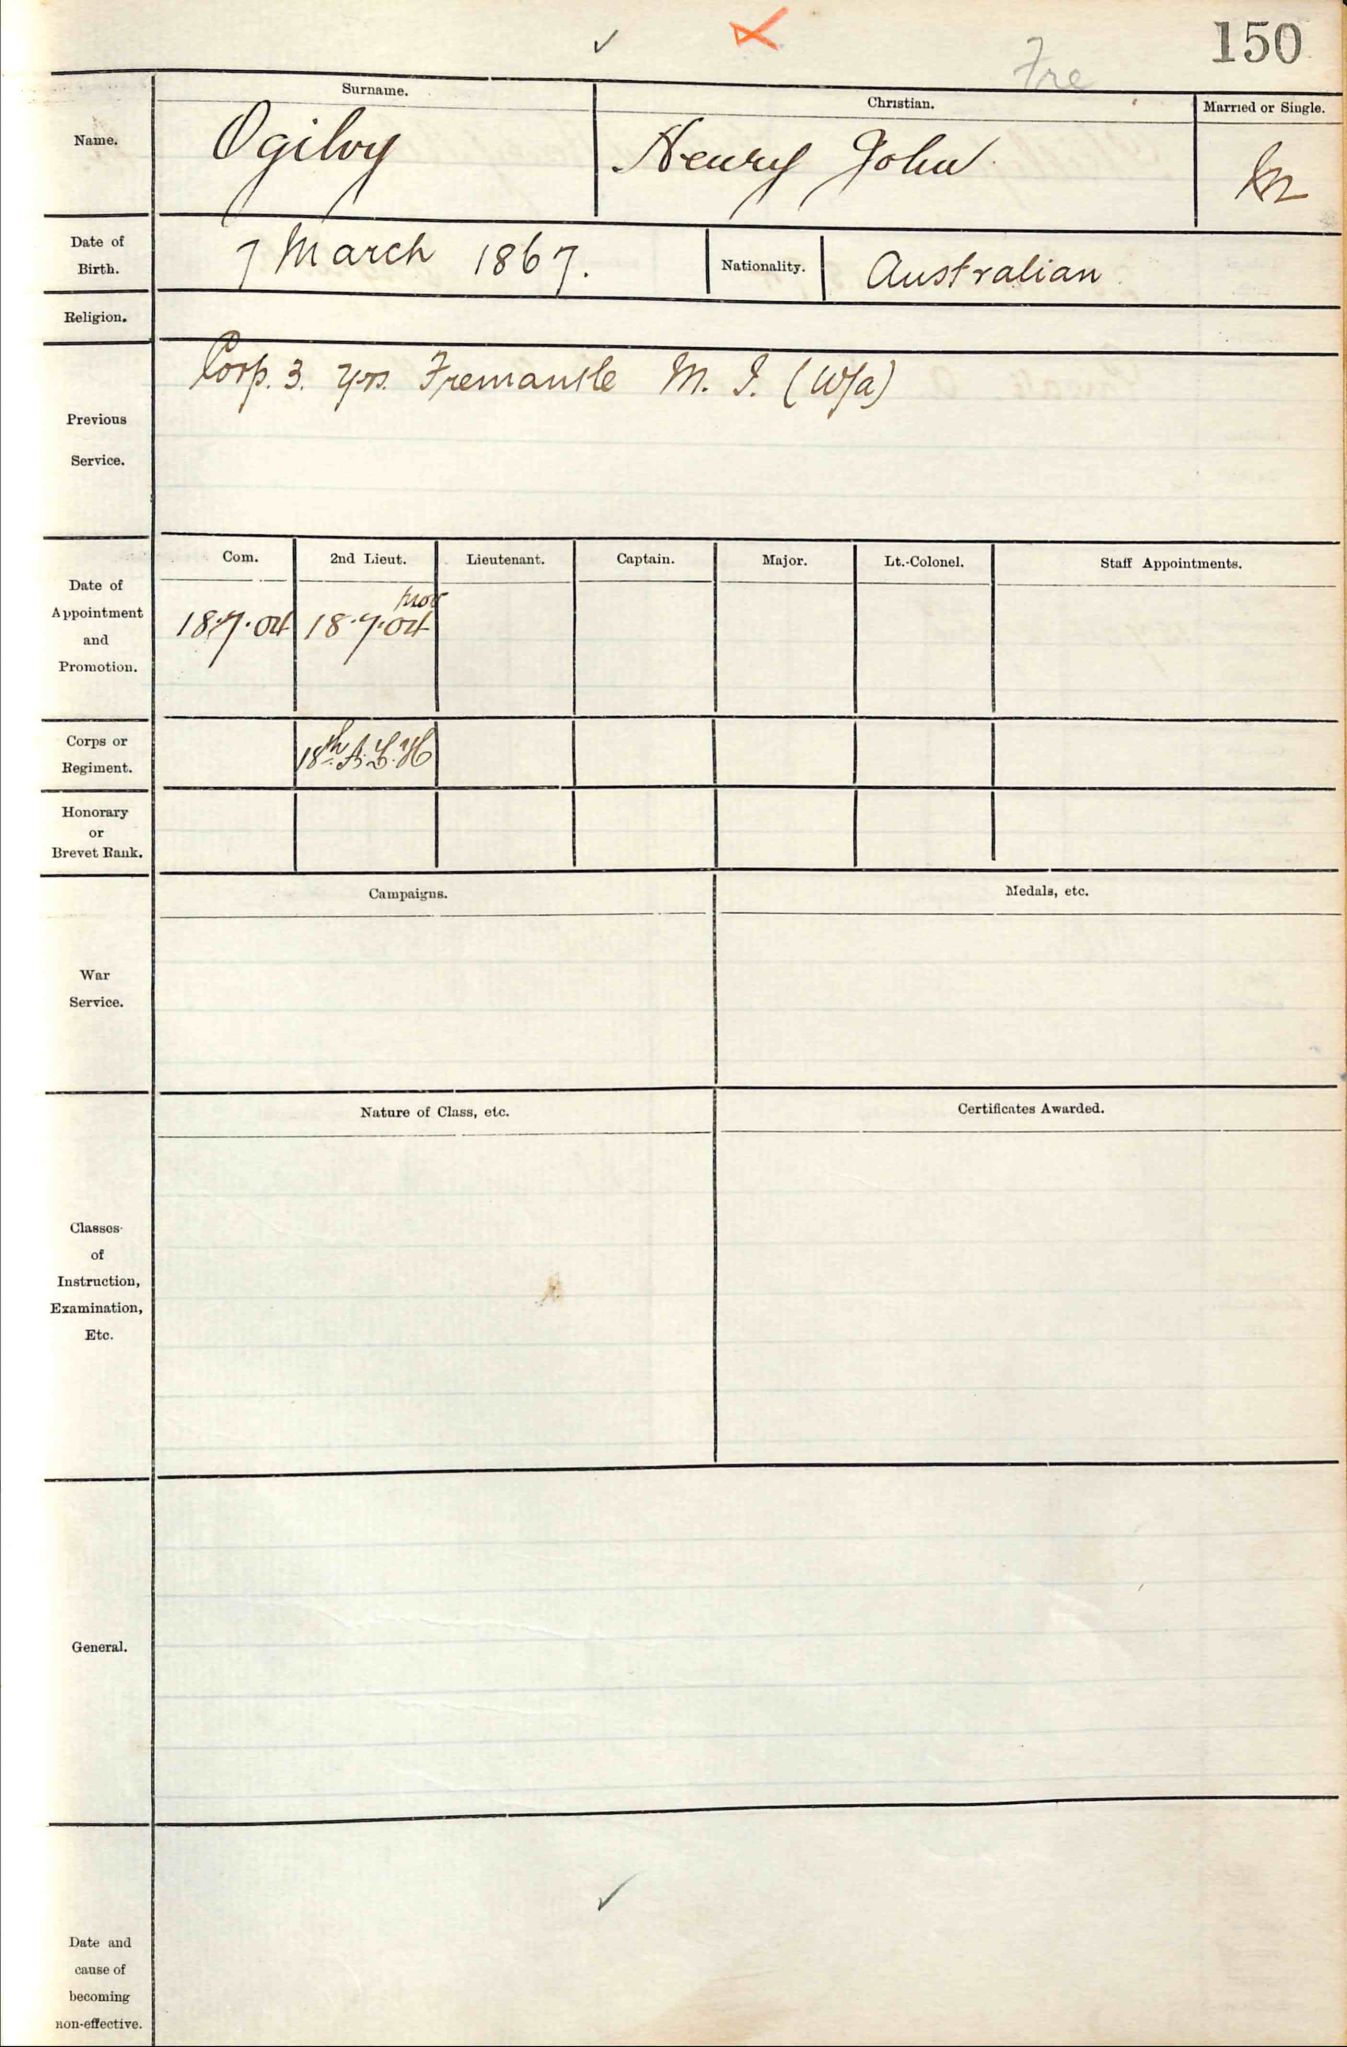 150
Fre
Surname.
Christian.
Married or Single.
Name.
Ogilvy
Henry John
M
Date of
Birth.
7 March 1867.
Nationality.
Australian
Religion.
Corp. 3. yrs. Fremantle M. I. (W/a)
Previous
Service.
Com.
2nd Lieut.
Lieutenant.
Captain.
Major.
Lt.-Colonel.
Staff Appointments.
Date of
Appointment
and
Promotion.
prov
18.7.04
18.7.04
Corps or
Regiment.
18th A.L.H
Honorary
or
Brevet Rank.
Campaigns.
Medals, etc.
War
Service.
Nature of Class, etc.
Certificates Awarded.
Classes
of
Instruction,
Examination,
Etc.
General.
Date and
cause of
becoming
non-effective.